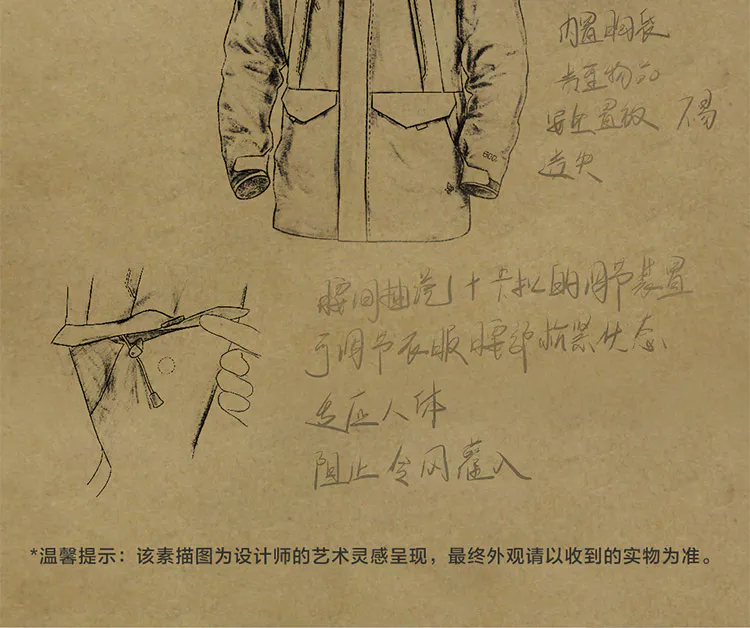 内置胸袋
贵重物品
安全置放 不易
遗失
腰间抽绳+卡扣的调节装置
可调节衣服腰部松紧状态
适应人体
阻止冷风灌入
*温馨提示：该素描图为设计师的艺术灵感呈现，最终外观请以收到的实物为准。